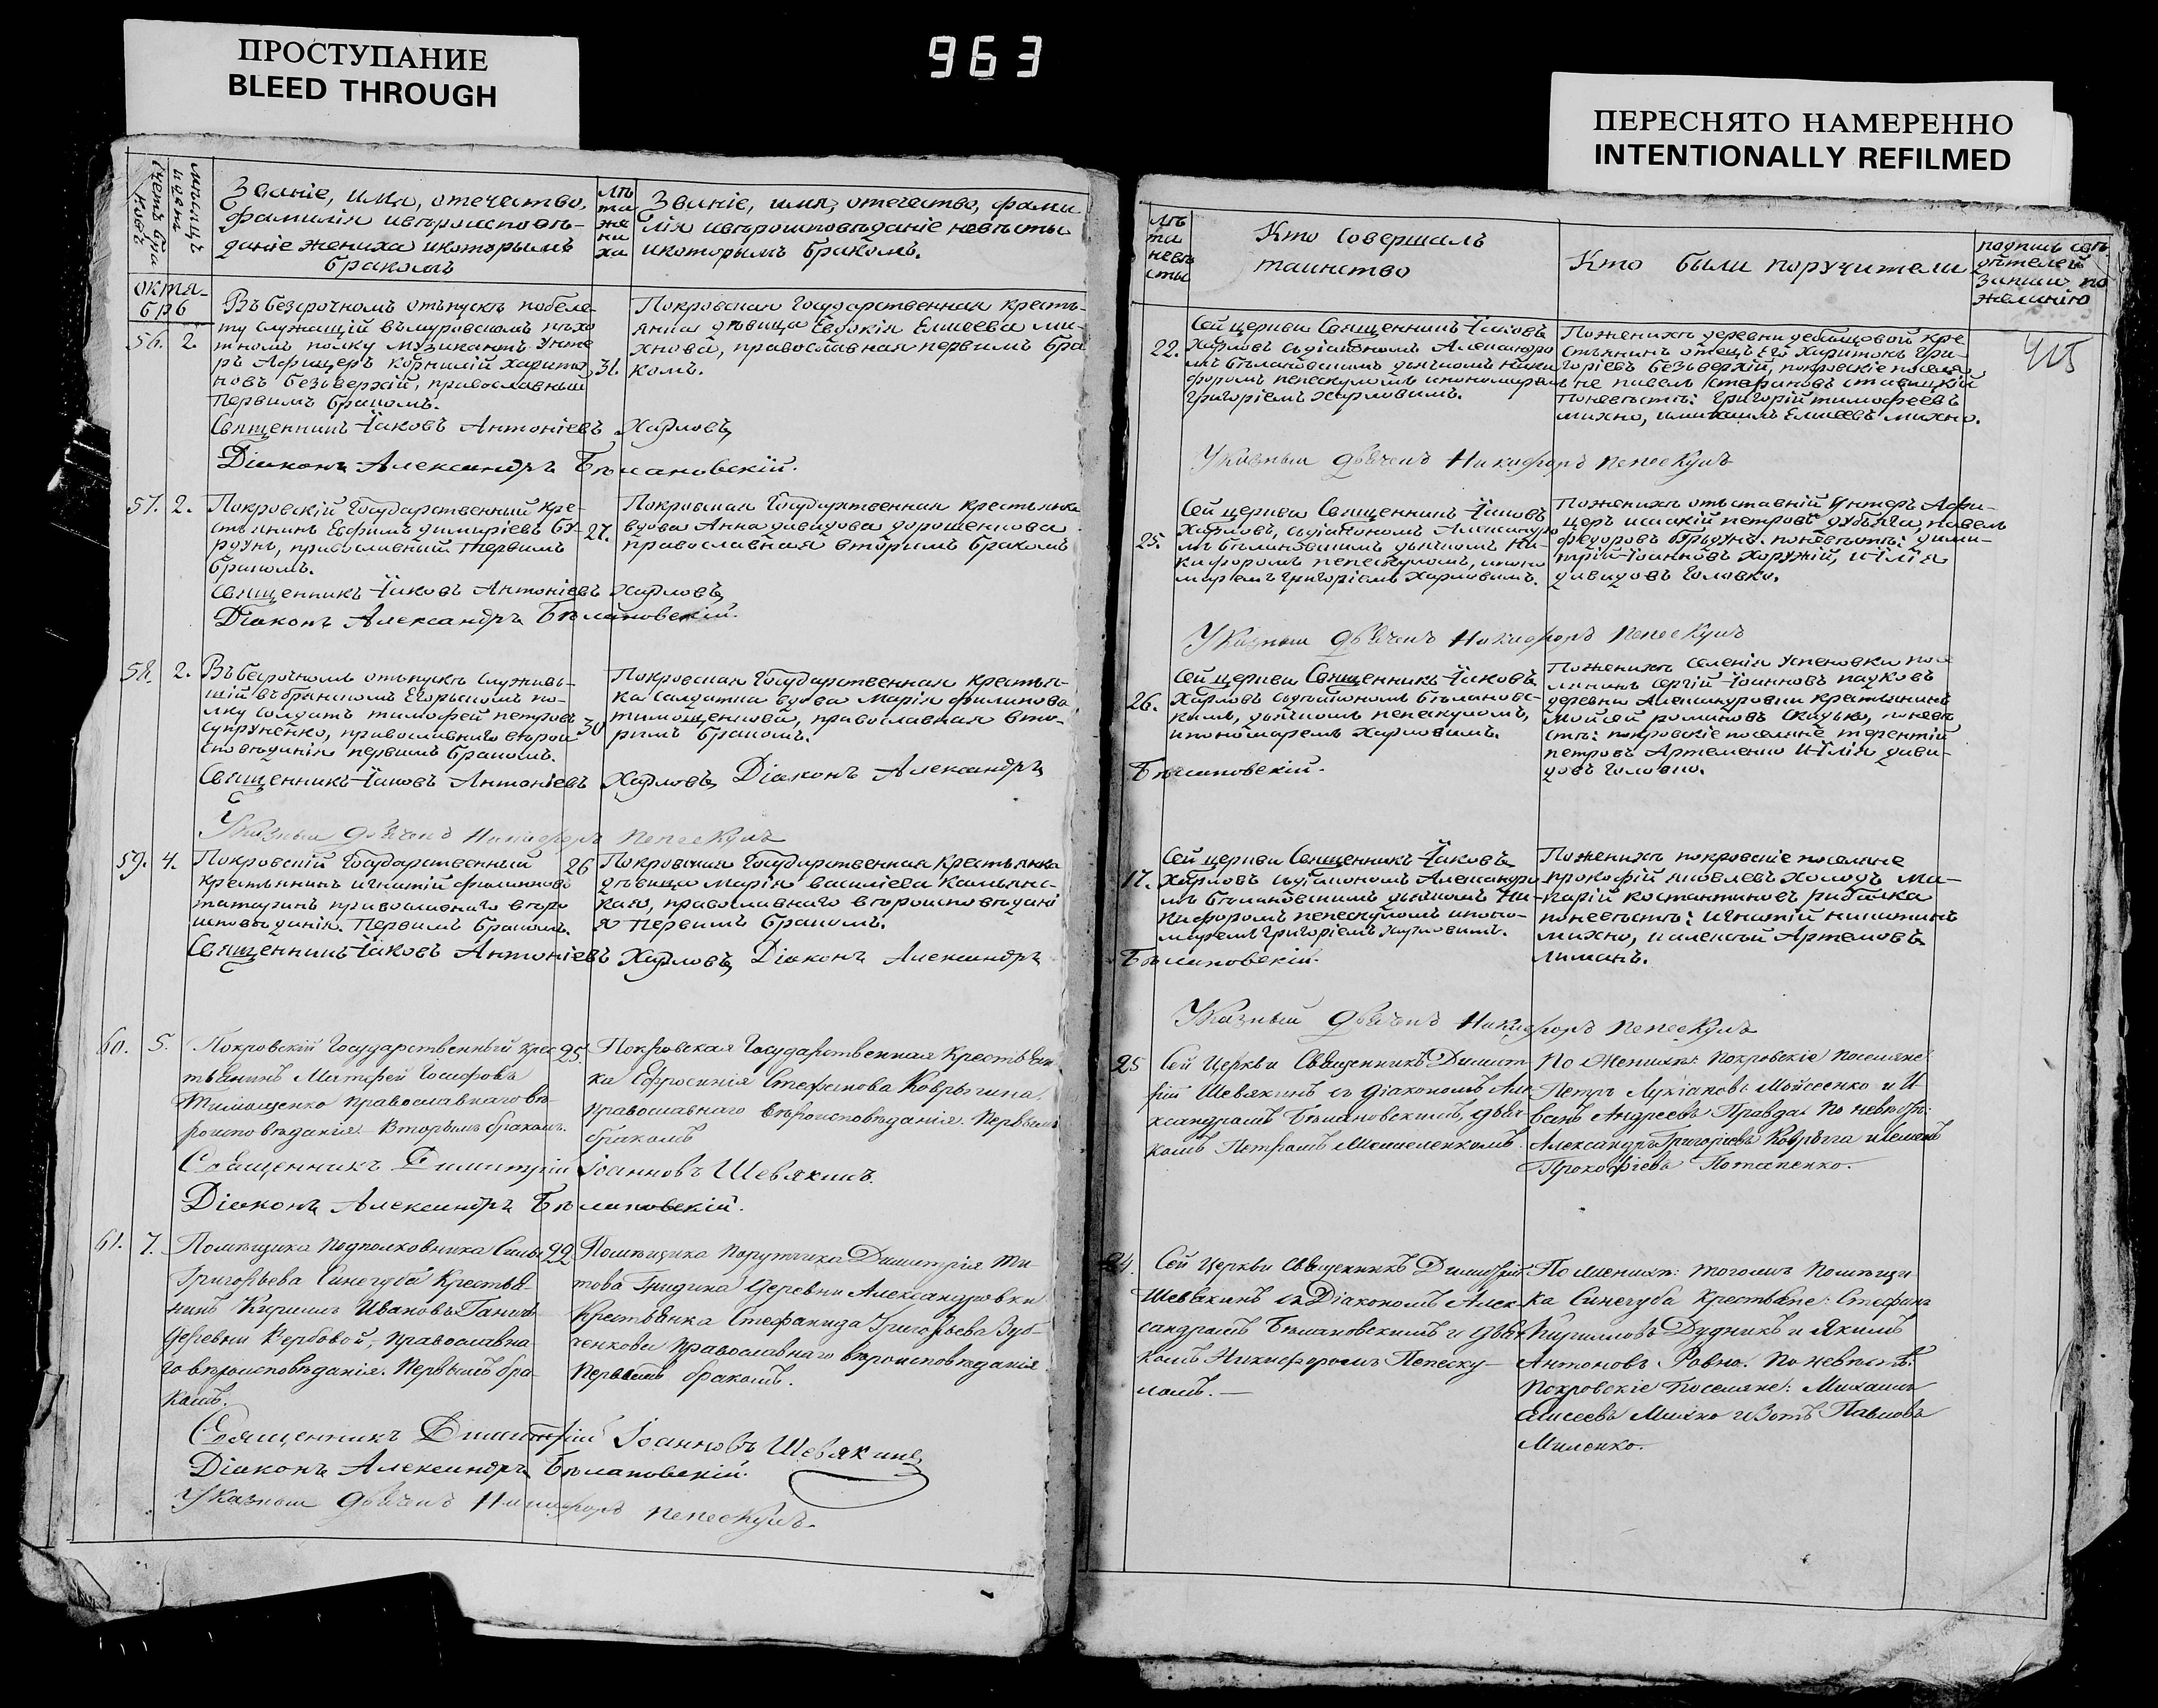 ПРОСТУПАНИЕ
BLEED THROUGH
963
ПЕРЕСНЯТО НАМЕРЕННО
INTENTIONALLY REFILMED
Счетъ бра
ковъ
мѣсяцъ
и день
Званіе, имя, отечество,
фамилія ивѣроисповѣ-
даніе жениха икоторымъ
бракомъ
Лѣ
та
же
ни
ха
Званіе, имя, отечество, фами
лія ивѣроисповѣданіе невѣсты
икоторымъ бракомъ.
Октя-
бр6
56. 2.
Въ безсрочномъ отпускѣ побиле-
ту служащій въ муровскомъ пѣхо
тномъ полку музыкантъ Унте
ръ Афицеръ Корнилій Харито
новъ Безверхій, православный
первымъ бракомъ.
31.
Покровская Государственная кресть-
янка дѣвица Евдокія Елисеева ми-
хнова, православная первымъ бра
комъ.
Священникъ Іаковъ Антоніевъ Харловъ
Діаконъ Александръ Бѣлановскій.
57. 2.
Покровскій Государственный кре-
стьянинъ Ефимъ димиріевъ
православный Первымъ
бракомъ.
27.
Покровская Государственная крестьянка
вдова Анна давидова дорошенкова
православная вторымъ бракомъ
Священникъ Іаковъ Антоніевъ Харловъ
Діаконъ Александръ Бѣлановскій.
58. 2.
Въ безсрочномъ отпускѣ служив-
шій въ брянскомъ Егорьскомъ по-
лку солдатъ тимофей петровъ
супруненко, православнаго вѣрои
сповѣданія первымъ бракомъ.
30
Покровская Государственная крестьян-
ка солдатка вдова Марія филипова
тимощенкова, православная вто-
рымъ бракомъ.
Священникъ Іаковъ Антоніевъ Харловъ Діаконъ Александръ
Указный дьячекъ Никифоръ Пепескулъ
59. 4.
Покровскій Государственный
крестьянинъ игнатій филиповъ
татаринъ православнаго вѣро
исповѣданія. Первымъ бракомъ.
26
Покровская Государственная Крестьянка
дѣвица Марія василіева Камянс-
каго, православнаго вѣроисповѣдані
я первымъ бракомъ.
Священникъ Іаковъ Антоніевъ Харловъ Діаконъ Александръ
60. 5.
Покровскій Государственный Крес
тьянинъ Матфей Іосифовъ
Тимощенко православнаго вѣ-
роисповѣданія. Вторымъ бракомъ.
25.
Покровская Государственная Крестьян-
ка Ефросинія Стефанова Коврыгина,
православнаго вѣроисповѣданія. Первымъ
бракомъ
Священникъ Димитрій Іоанновъ Шевякинъ.
Діаконъ Александръ Бѣлановскій.
61. 7.
Помѣщика подполковника
Григорьева Синегуба Крестья-
нинъ Кирилъ Ивановъ
Деревни Вербовой, православна
го вѣроисповѣданія. Первымъ бра-
комъ.
22
Помѣщика Поручика Димитрія Ти-
това Гнидина деревни Александровки
Крестьянка Стефанида Григорьева Зуб-
ченкова Православнаго вѣроисповѣданія
Первымъ бракомъ.
Священникъ Димитрій Іоанновъ Шевякинъ
Діаконъ Александръ Бѣлановскій.
Указный дьячекъ Никифоръ Пепескулъ.
Лѣ
та
невѣ
сты
Кто совершалъ
таинство
Кто были поручители
подпись сви
дѣтелей
записи по
желанію
415
22.
Сей церкви Священникъ Іаковъ
Харловъ съдіакономъ Александро
мъ Бѣлановскимъ дьячкомъ Ники
форомъ пепескуломъ ипономаремъ
григоріемъ Харловымъ.
Поженихѣ деревни дебальцовой кре
стьянинъ отецъ Его Харитонъ Гри-
горіевъ безъверхій, покровскіе поселя
не павелъ стефановъ ставицкій
Поневѣстѣ: григорій тимофеевъ
михно, имихаилъ Елисеевъ михно.
Указный дьячекъ Никифоръ Пепескулъ
25.
Сей церкви Священникъ Іаковъ
Харловъ, съдіакономъ Александро
мъ Бѣлановскимъ дьячкомъ Ни-
кифоромъ пепескуломъ, ипоно
маремъ григоріемъ Харловымъ.
Поженихѣ отъставній Унтеръ Афи-
церъ исакій петровъ дубяга, павелъ
федоровъ поневѣстѣ: дими-
трій Іоанновъ Хоружій, и Илія
давидовъ Головко.
Указный дьячекъ Никифоръ Пепескулъ
26.
Сей церкви Священникъ Іаковъ
Харловъ съдіакономъ Бѣлановс-
кимъ, дьячкомъ пепескуломъ,
ипономаремъ Харловымъ.
Поженихѣ селенія Успеновки посе
лянинъ сергій Іоанновъ пауковъ
деревни Александровки крестьянинъ
Мойсей романовъ поневѣ
стѣ: покровскіе поселяне терентій
петровъ Артеменко и Илія дави-
довъ Головко.
Бѣлановскій.
17.
Сей церкви Священникъ Іаковъ
Харловъ съдіакономъ Александро
мъ Бѣлановскимъ дьячкомъ Ни-
кифоромъ пепескуломъ ипоно-
маремъ григоріемъ харловымъ.
Поженихѣ покровскіе поселяне
прокофій яковлевъ холодъ Ма-
карій костантиновъ рибалка
поневѣстѣ: игнатій никитинъ
михно, иалексій Артемовъ
лиманъ.
Бѣлановскій.
Указный дьячекъ Никифоръ Пепескулъ
25
Сей Церкви Священникъ Димит
рій Шевякинъ съ діакономъ Але-
ксандромъ Бѣлановскимъ, дьяч
комъ Петромъ
По Женихѣ: Покровскіе Поселяне:
Петръ Лукіановъ Мойсеенко и И
ванъ Андреевъ Правда. По невѣстѣ:
Александръ Григоріевъ Коврыга иСеменъ
Прокофіевъ Потапенко.
24.
Сей Церкви Священникъ Димитрій
Шевякинъ съ Діакономъ Алек-
сандромъ Бѣлановскимъ и дьяч
комъ Никифоромъ Пепеску-
ломъ. —
По женихѣ: тогожъ Помѣщи
ка Синегуба Крестьяне: Стефанъ
Кириловъ Дудникъ и Якимъ
Антоновъ Ровно. По невѣстѣ:
Покровскіе Поселяне: Михаилъ
Елисеевъ Михно Павловъ
Миленко.